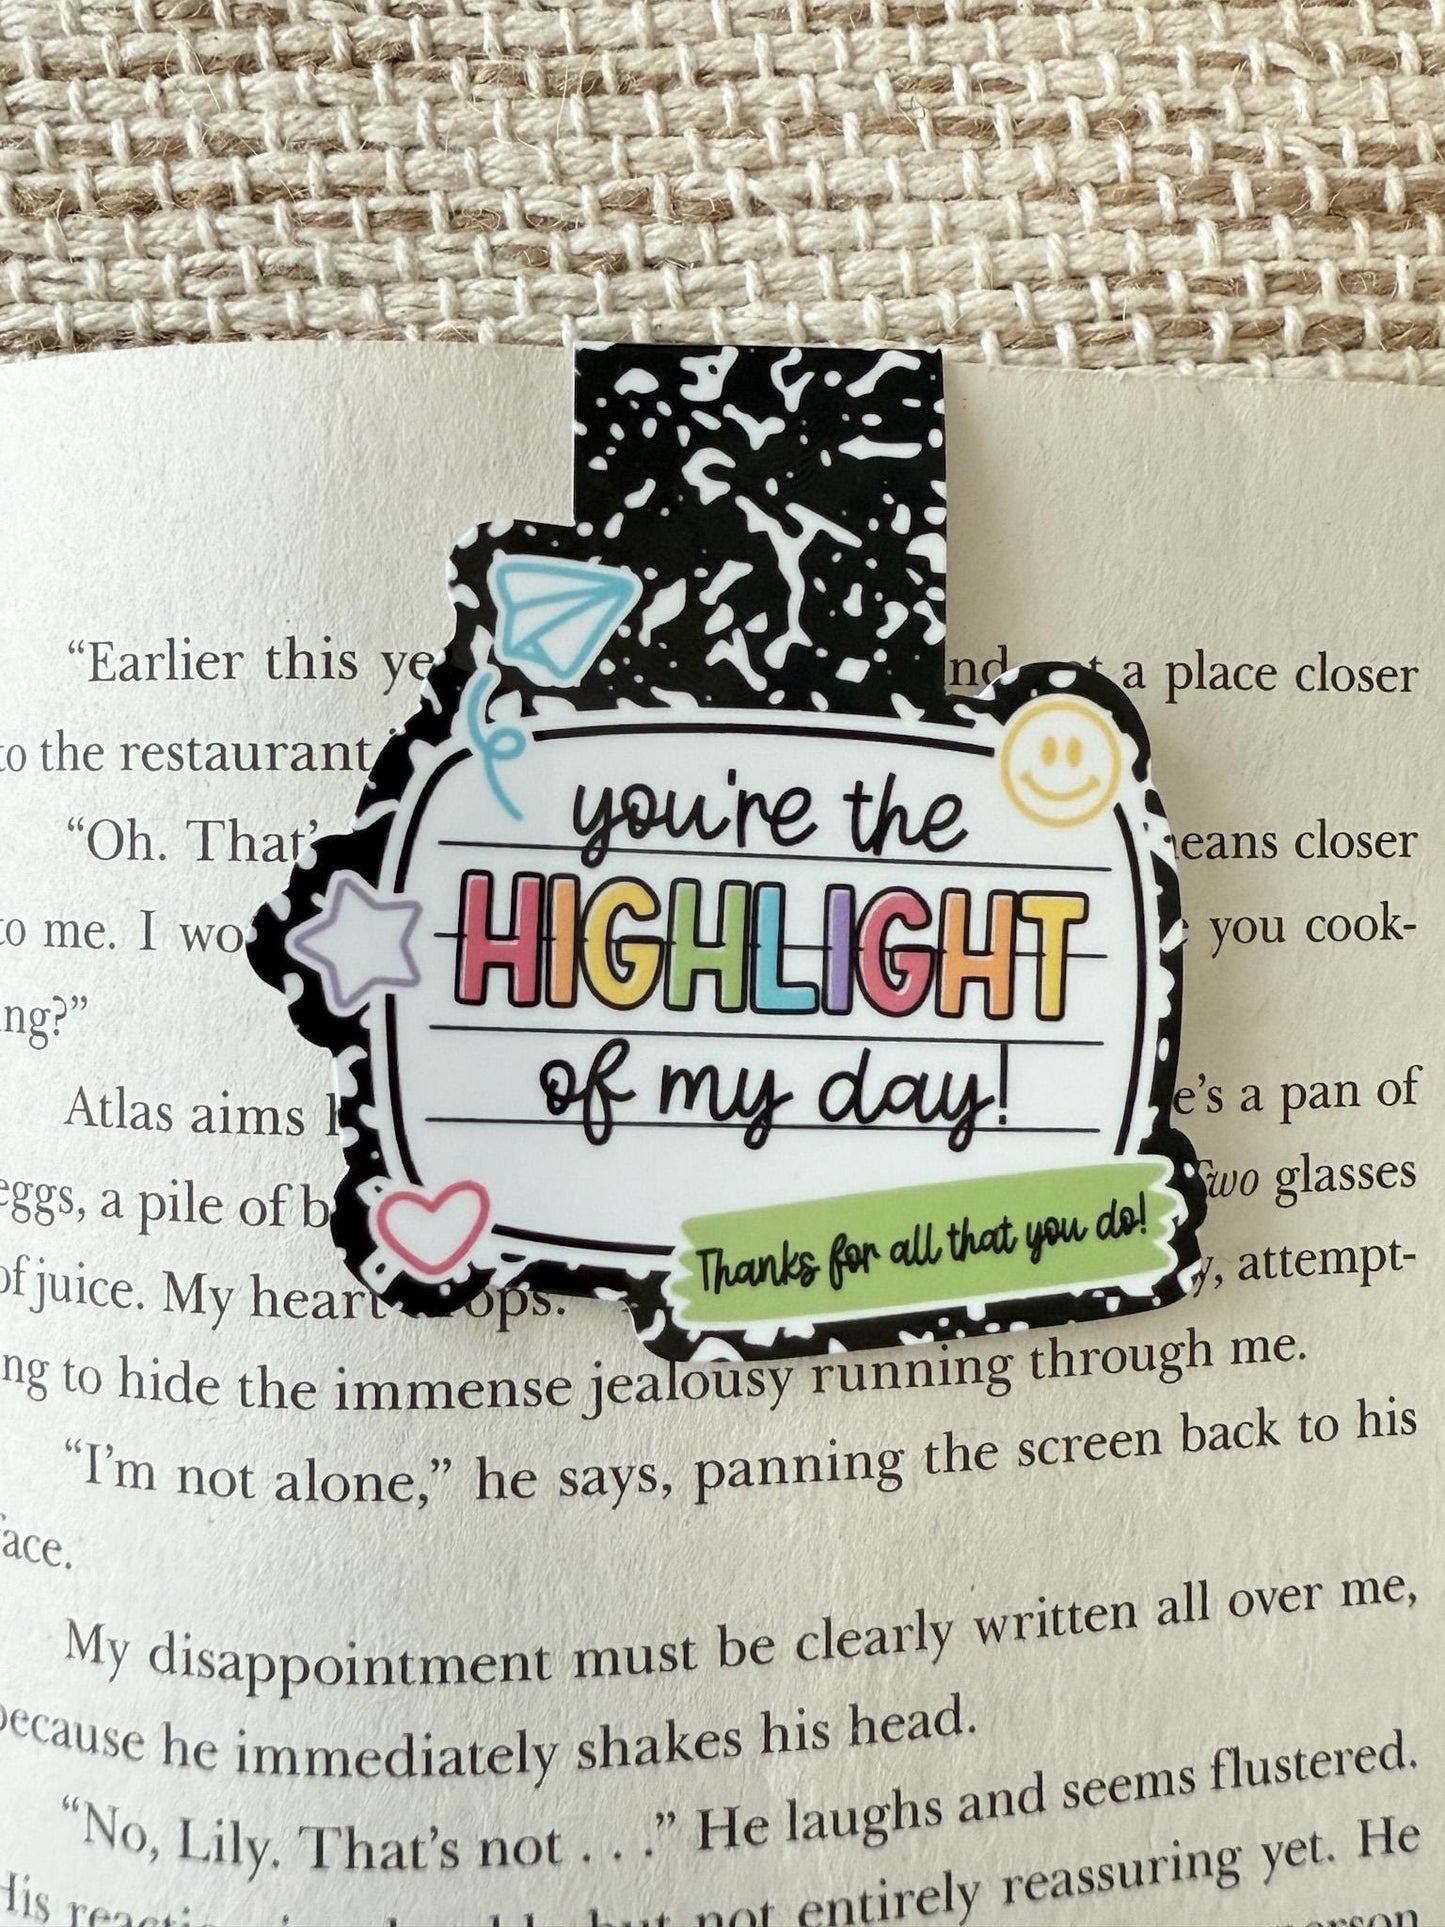 “Earlier this
a place closer
to the restaurant
“Oh. That’
means closer
to me. I
you cook-
ing?”
Atlas aims
a pan of
eggs, a pile of
Two glasses
of juice. My heart
attempt-
ing to hide the immense jealousy running through me.
“I’m not alone,” he says, panning the screen back to his
face.
My disappointment must be clearly written all over me,
because he immediately shakes his head.
“No, Lily. That’s not . . .” He laughs and seems flustered.
not entirely reassuring yet. He
you're the
HIGHLIGHT
of my day!
Thanks for all that you do!